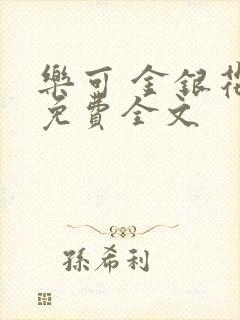 樂可 金銀花
免費全文
孫希利